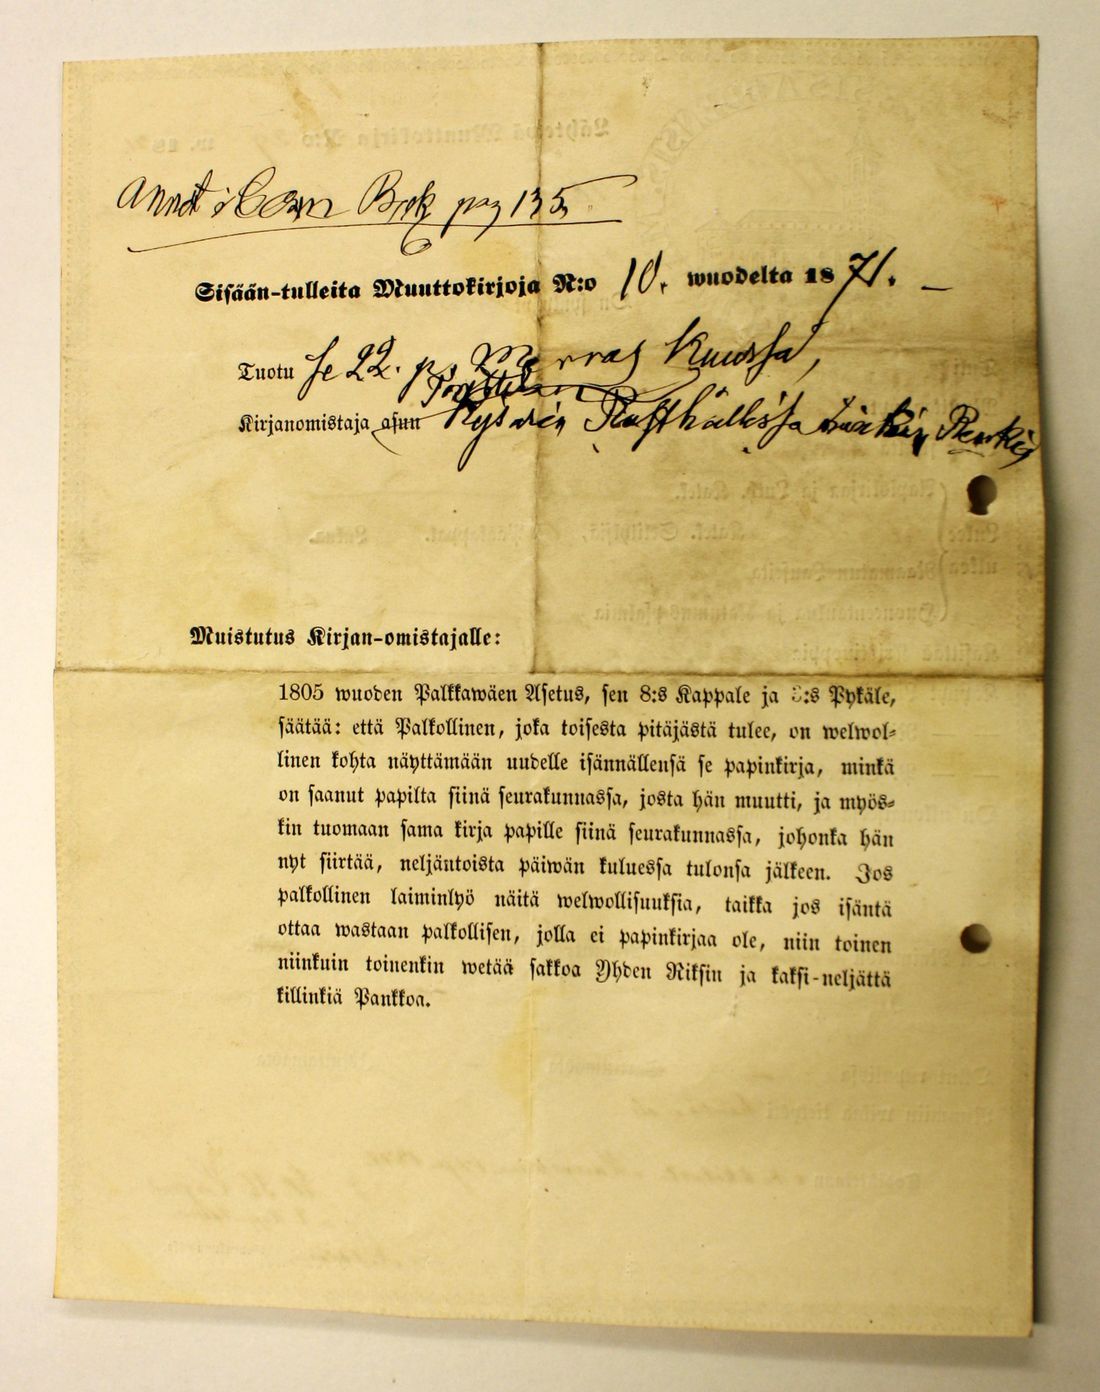 Annot i Com Bok pag 135
Sisään-tulleita Muuttokirjoja N:o 10. wuodelta 1871.
Tuotu se 22. p. Marras Kuussa,
Kirjanomistaja asuu
Muistutus Kirjan-omistajalle:
1805 wuoden Palkkawäen Asetus, sen 8:s Kappale ja :s Pykäle,
säätää: että Palkollinen, joka toisesta pitäjästä tulee, on welwol-
linen kohta näyttämään uudelle isännällensä se papinkirja, minkä
on saanut papilta siinä seurakunnassa, josta hän muutti, ja myös-
kin tuomaan sama kirja papille siinä seurakunnassa, johonka hän
nyt siirtää, neljäntoista päiwän kuluessa tulonsa jälkeen. Jos
palkollinen laiminlyö näitä welwollisuuksia, taikka jos isäntä
ottaa wastaan palkollisen, jolla ei papinkirjaa ole, niin toinen
niinkuin toinenkin wetää sakkoa Yhden Riksin ja kaksi-neljättä
killinkiä Pankkoa.